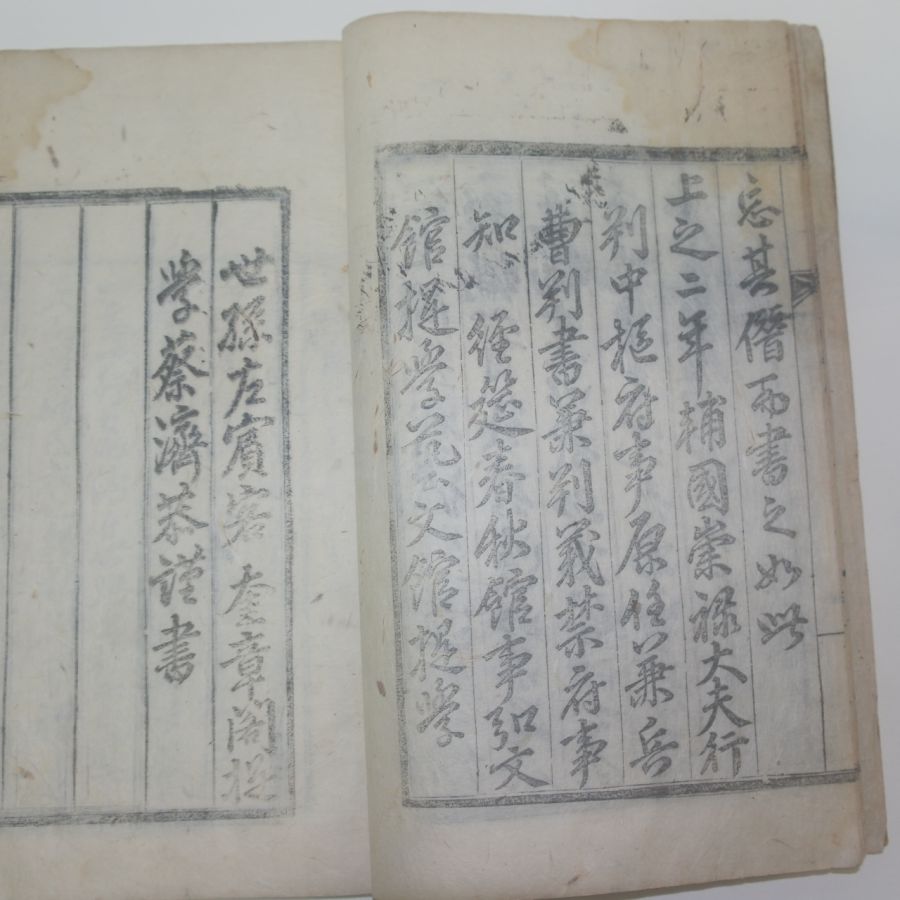 忘其僭而書之如此
上之二年輔國崇祿大夫行
判中樞府事原任兼兵
曹判書兼判義禁府事
知 經筵春秋館事弘文
館提學藝文館提學
世孫左賓客 奎章閣提
學蔡濟恭謹書